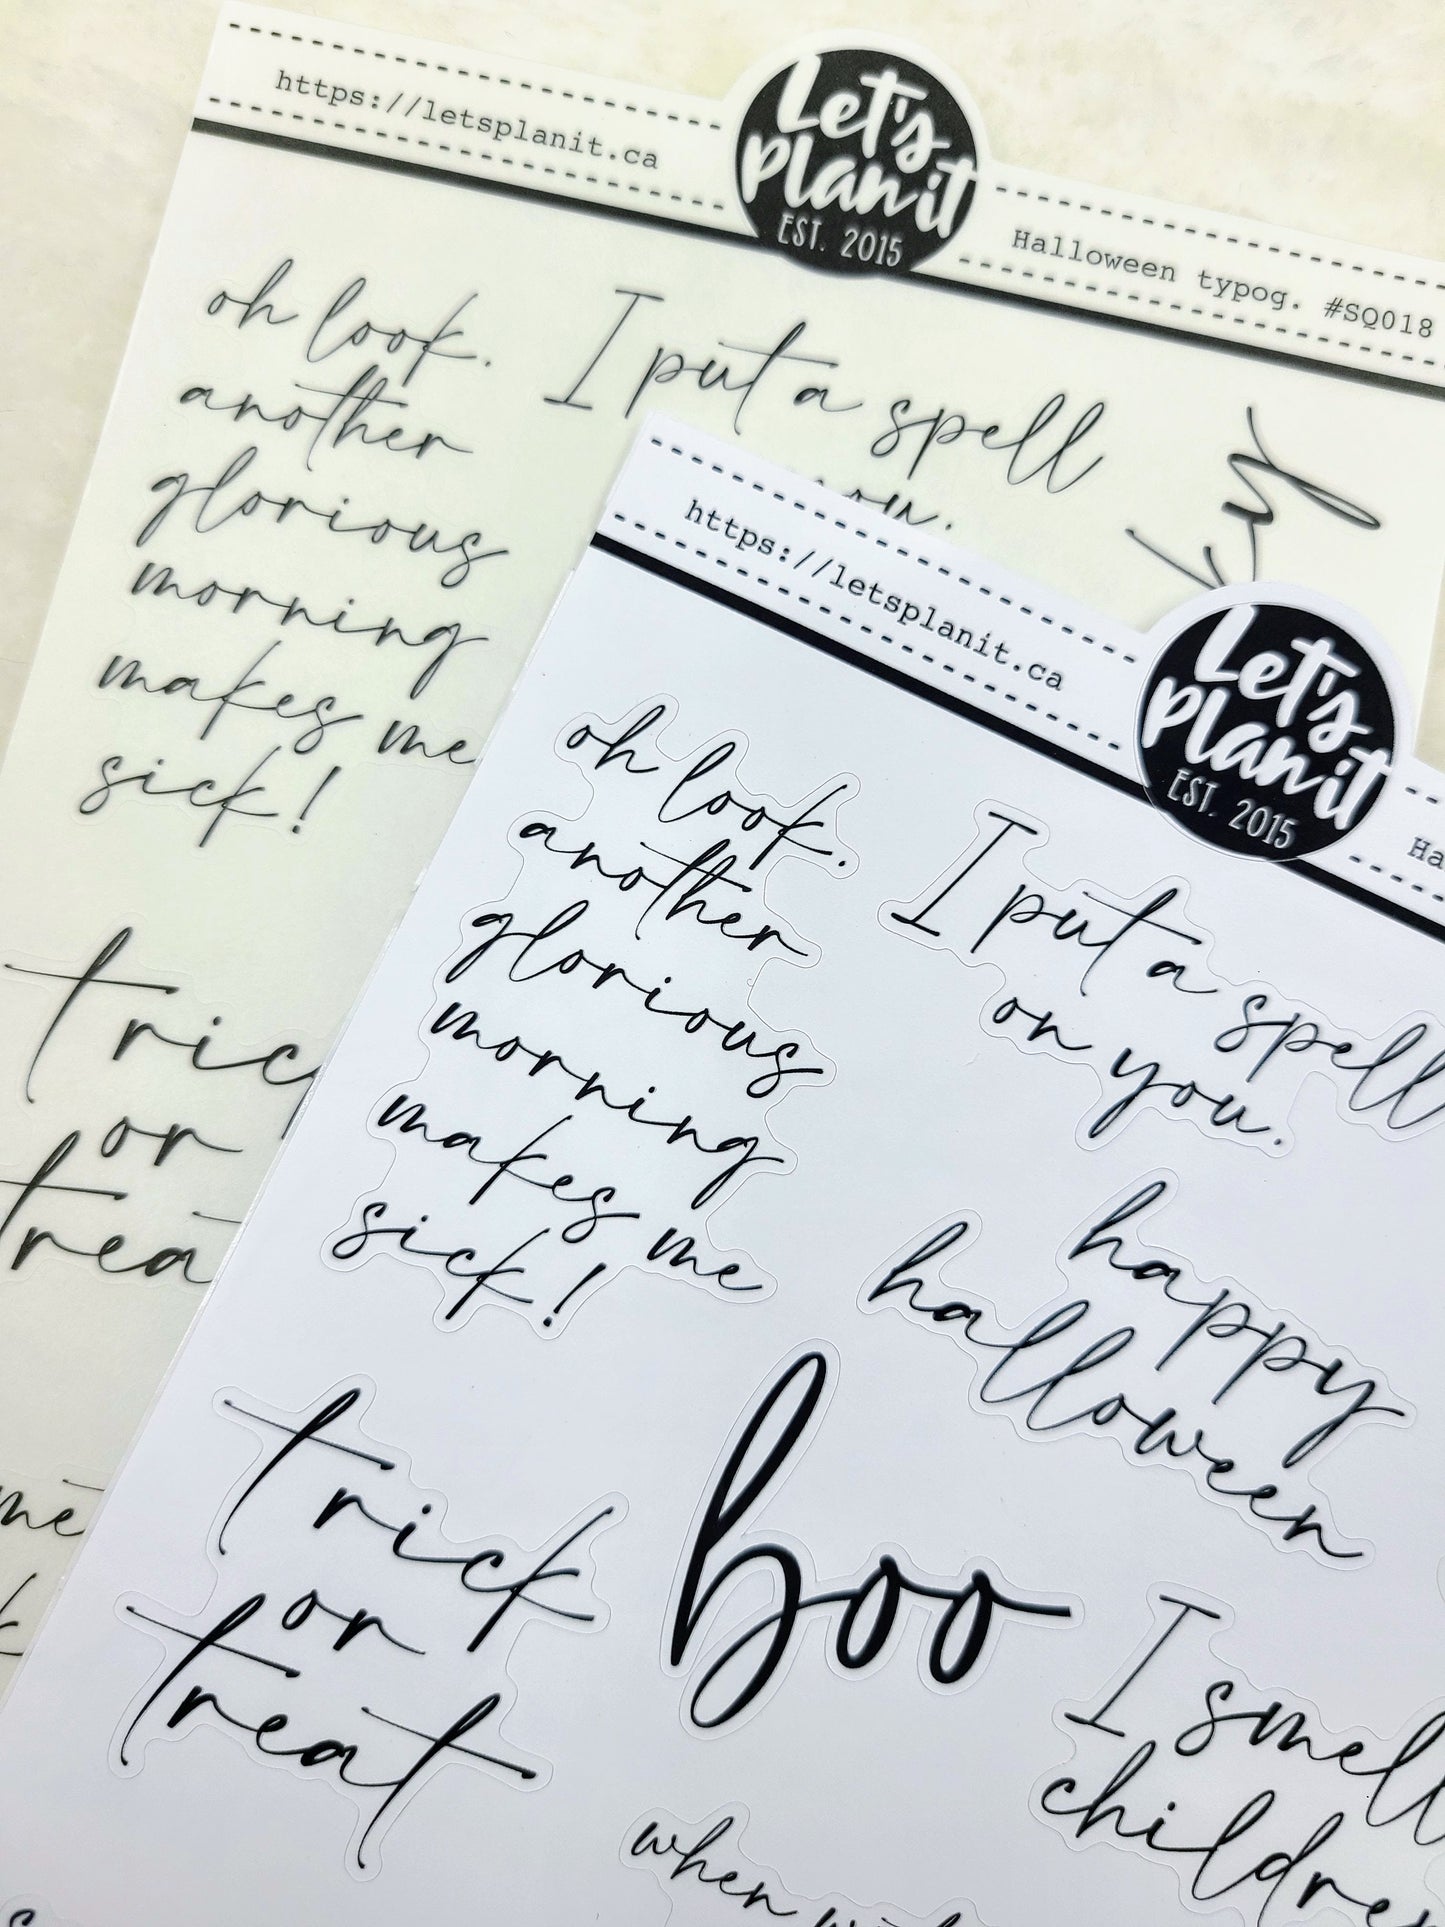 https://letsplanit.ca
Let's
Planit
EST. 2015
Halloween typog. #SQ018
oh look.
another
glorious
morning
makes me
sick!
I put a spell
you.
or
me
https://letsplanit.ca
Let's
Planit
EST. 2015
oh look.
another
glorious
morning
makes me
sick!
I put a spell
on you.
happy
halloween
trick
or
treat
boo
I smell
children
when